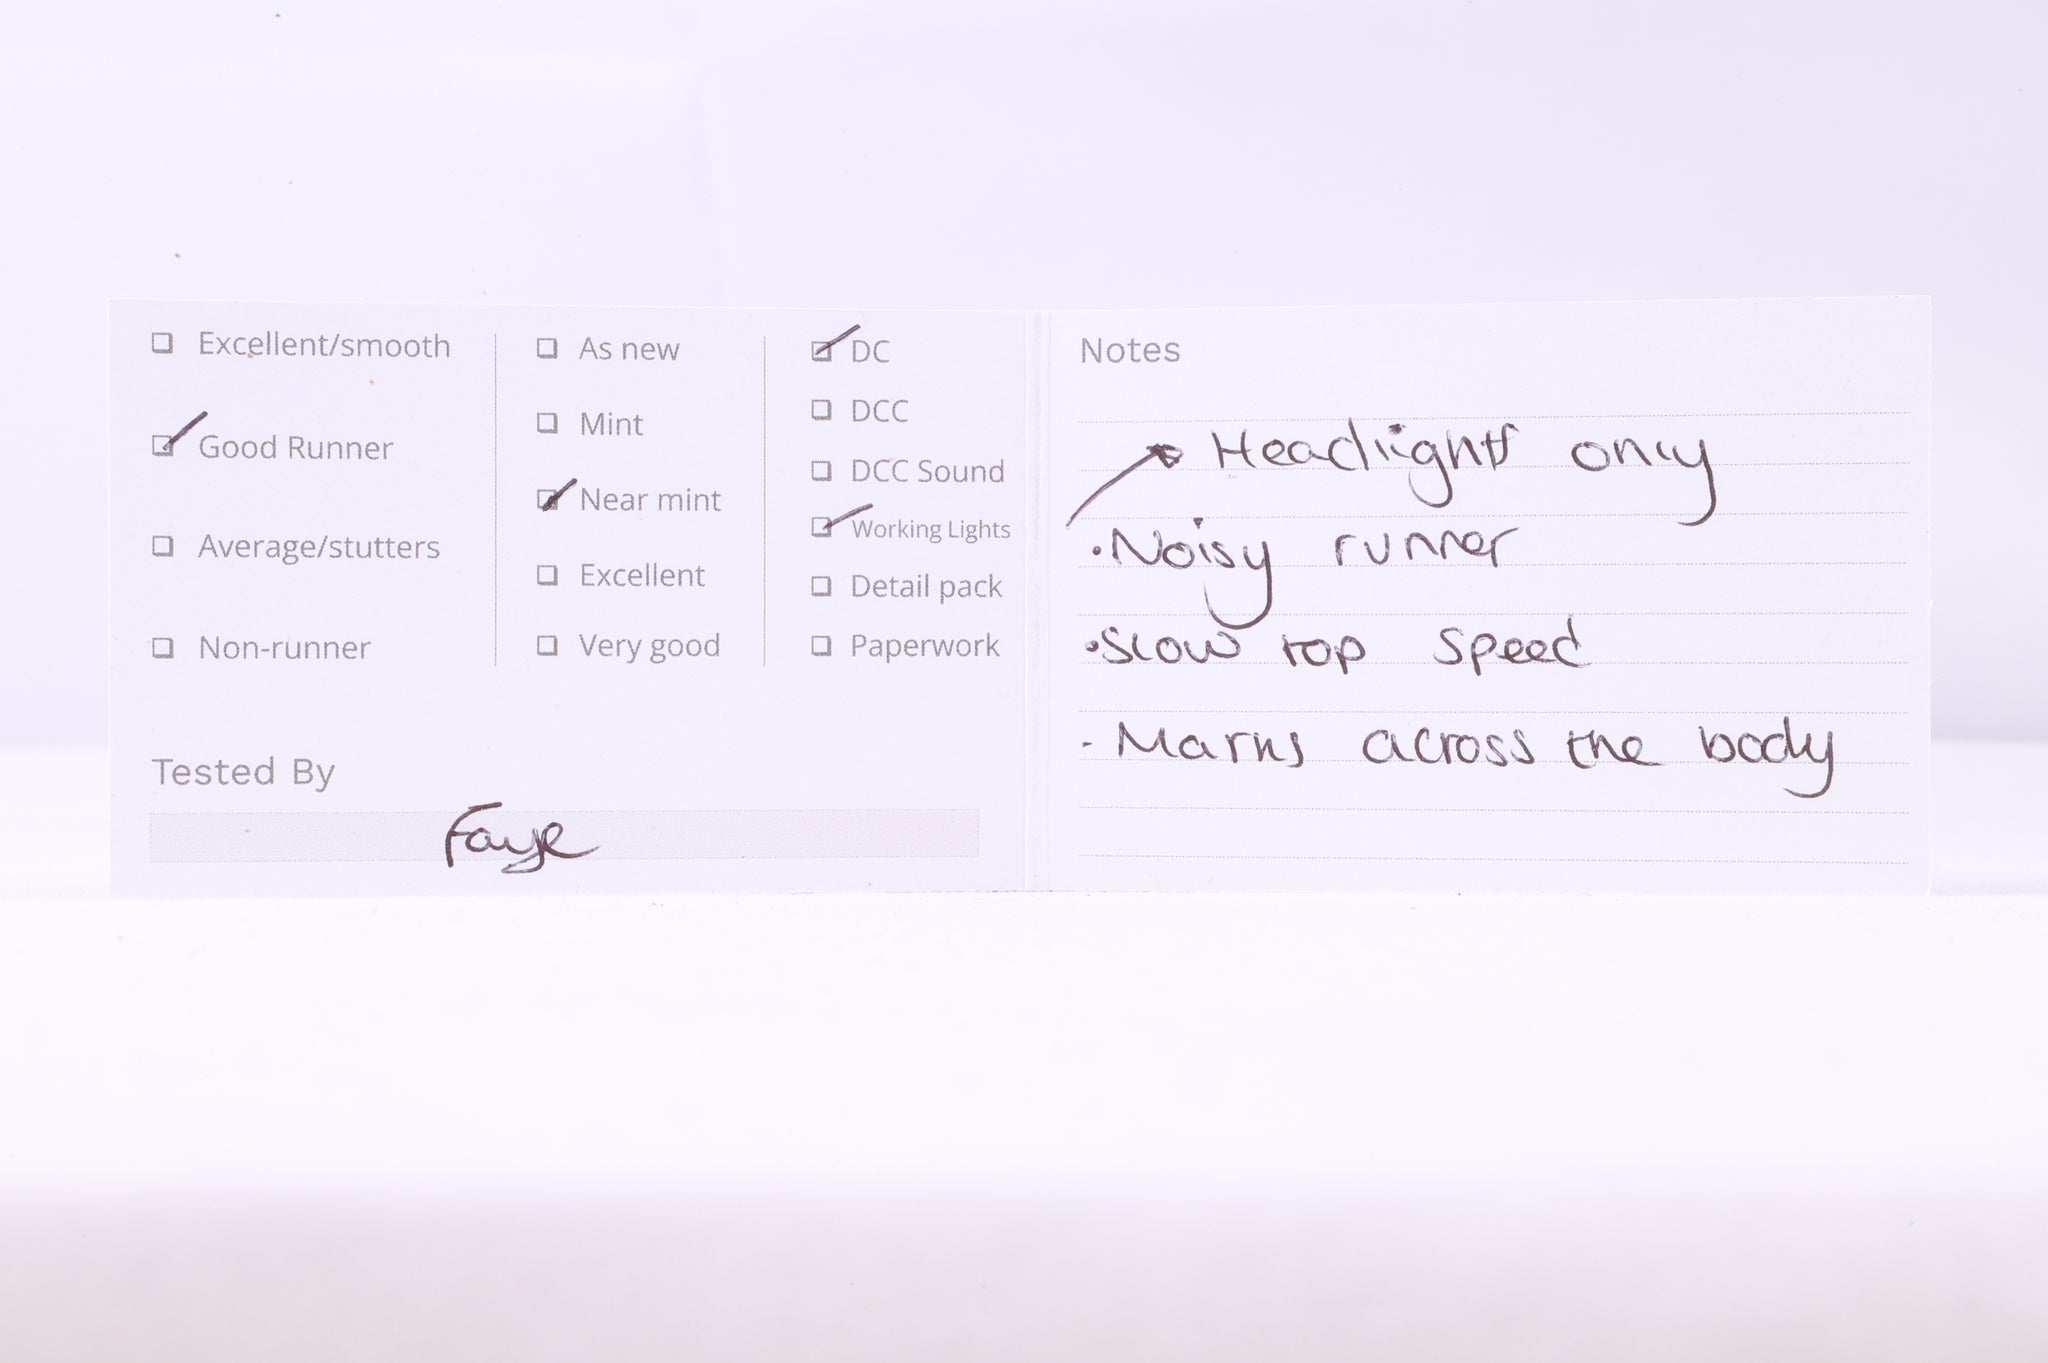 Excellent/smooth
Good Runner
Average/stutters
Non-runner
As new
Mint
Near mint
Excellent
Very good
DC
DCC
DCC Sound
Working Lights
Detail pack
Paperwork
Tested By
Faye
Notes
Headlights only
• Noisy runner
• Slow top speed
- Marks across the body